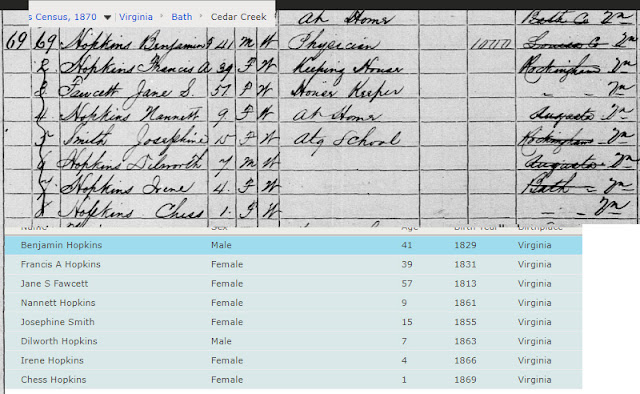 s Census, 1870 Virginia Bath Cedar Creek
At Home Bath Co Va
69 69 Hopkins Benjamin 41 M W Physician 1000 Louisa Co Va
2 Hopkins Francis A 39 F W Keeping House Rockingham Va
3 Fawcett Jane S. 57 F W House Keeper " " Va
4 Hopkins Nannett 9 F W At Home Augusta Va
5 Smith Josephine 15 F W Atg School Rockingham Va
6 Hopkins Dilworth 7 M W Augusta Va
7 Hopkins Irene 4. F W Bath Va
8 Hopkins Chess 1. F W " Va
Name Sex Age Birth Year Birthplace
Benjamin Hopkins Male 41 1829 Virginia
Francis A Hopkins Female 39 1831 Virginia
Jane S Fawcett Female 57 1813 Virginia
Nannett Hopkins Female 9 1861 Virginia
Josephine Smith Female 15 1855 Virginia
Dilworth Hopkins Male 7 1863 Virginia
Irene Hopkins Female 4 1866 Virginia
Chess Hopkins Female 1 1869 Virginia